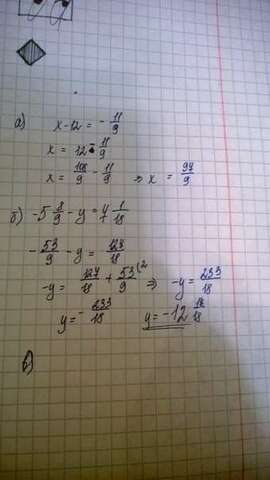 а) x-12 = -11/9
x = 12 - 11/9
x = 108/9 - 11/9 ⇒ x = 97/9
б) -5 8/9 - y = 7 1/18
-53/9 - y = 127/18
-y = 127/18 + 53/9 (2 ⇒ -y = 233/18
y = -233/18 y = -12 17/18
в)